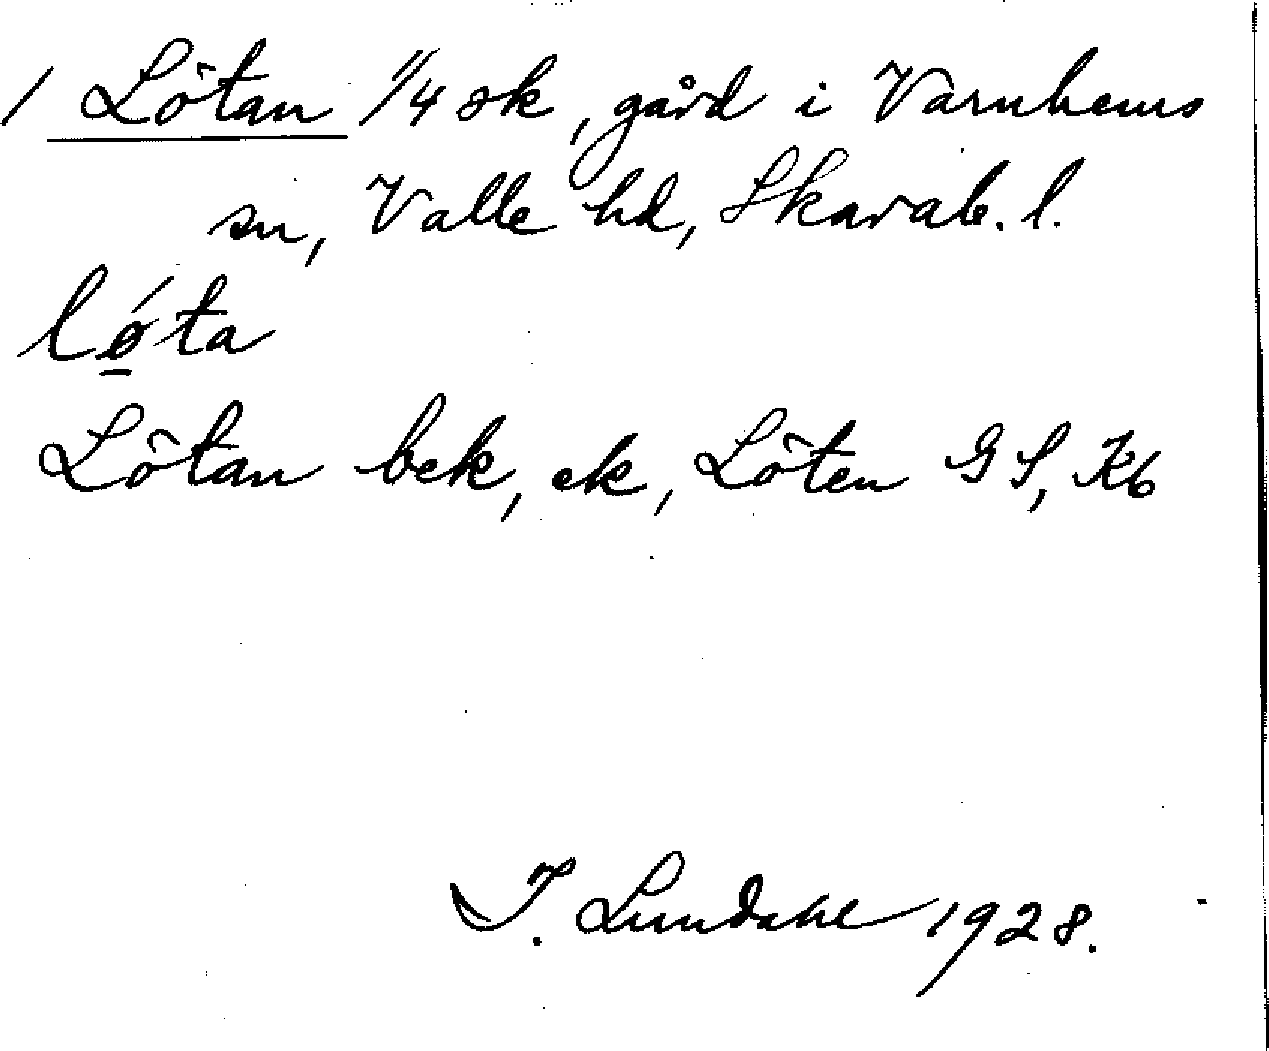 1 Lötan 1/4 sk, gård i Varnhems
sn, Valle hd, Skarab. l.
lǿta
Lötan bek, ek, Löten GS, Kb
I. Lundahl 1928.